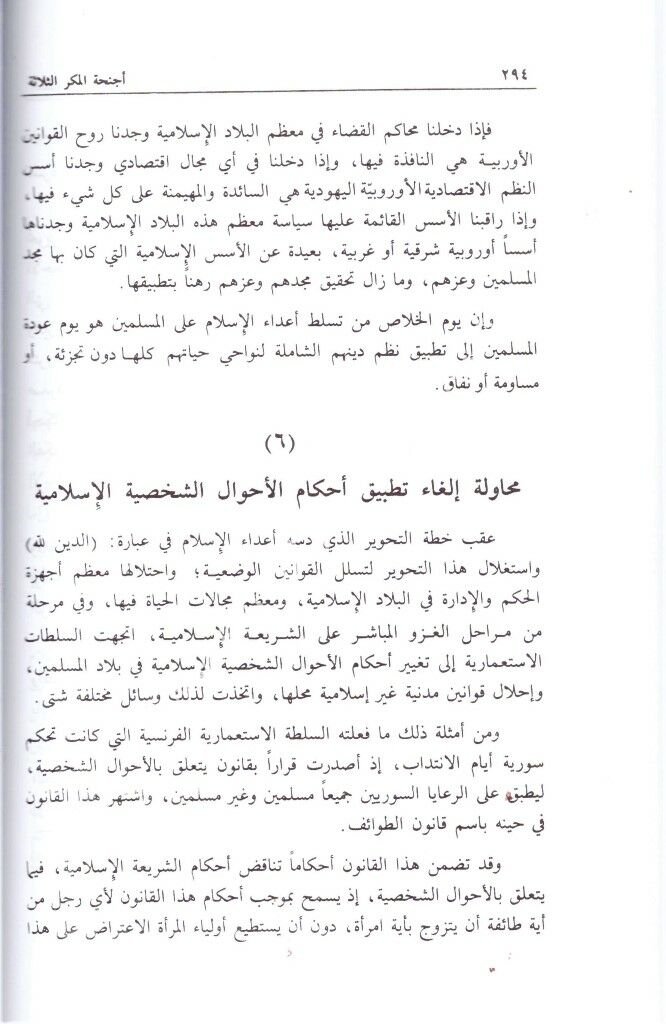 ٢٩٤
أجنحة المكر الثلاثة
فإذا دخلنا محاكم القضاء في معظم البلاد الإسلامية وجدنا روح القوانين
الأوربية هي النافذة فيها، وإذا دخلنا في أي مجال اقتصادي وجدنا أسس
النظم الاقتصادية الأوروبيّة اليهودية هي السائدة والمهيمنة على كل شيء فيها،
وإذا راقبنا الأسس القائمة عليها سياسة معظم هذه البلاد الإسلامية وجدناها
أسساً أوروبية شرقية أو غربية، بعيدة عن الأسس الإسلامية التي كان بها مجد
المسلمين وعزهم، وما زال تحقيق مجدهم وعزهم رهناً بتطبيقها.
وإن يوم الخلاص من تسلط أعداء الإسلام على المسلمين هو يوم عودة
المسلمين إلى تطبيق نظم دينهم الشاملة لنواحي حياتهم كلها دون تجزئة، أو
مساومة أو نفاق.
(٦)
محاولة إلغاء تطبيق أحكام الأحوال الشخصية الإسلامية
عقب خطة التحوير الذي دسه أعداء الإسلام في عبارة: (الدين لله)
واستغلال هذا التحوير لتسلل القوانين الوضعية؛ واحتلالها معظم أجهزة
الحكم والإدارة في البلاد الإسلامية، ومعظم مجالات الحياة فيها، وفي مرحلة
من مراحل الغزو المباشر على الشريعة الإسلامية، اتجهت السلطات
الاستعمارية إلى تغيير أحكام الأحوال الشخصية الإسلامية في بلاد المسلمين،
وإحلال قوانين مدنية غير إسلامية محلها، واتخذت لذلك وسائل مختلفة شتى.
ومن أمثلة ذلك ما فعلته السلطة الاستعمارية الفرنسية التي كانت تحكم
سورية أيام الانتداب، إذ أصدرت قراراً بقانون يتعلق بالأحوال الشخصية،
ليطبق على الرعايا السوريين جميعاً مسلمين وغير مسلمين، واشتهر هذا القانون
في حينه باسم قانون الطوائف.
وقد تضمن هذا القانون أحكاماً تناقض أحكام الشريعة الإسلامية، فيما
يتعلق بالأحوال الشخصية، إذ يسمح بموجب أحكام هذا القانون لأي رجل من
أية طائفة أن يتزوج بأية امرأة، دون أن يستطيع أولياء المرأة الاعتراض على هذا